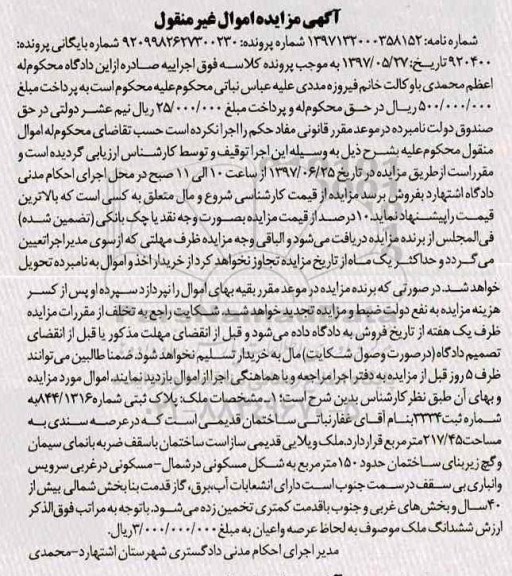 آگهی مزایده اموال غیر منقول
شماره نامه: ۱۳۹۷۱۳۲۰۰۰۳۵۸۱۵۲ شماره پرونده: ۹۲۰۹۹۸۲۶۲۷۳۰۰۲۳۰ شماره بایگانی پرونده:
۹۲۰۴۰۰ تاریخ: ۱۳۹۷/۰۵/۲۷ به موجب پرونده کلاسه فوق اجراییه صادره از این دادگاه محکوم‌له
اعظم محمدی باوکالت خانم فیروزه مددی علیه عباس نباتی محکوم علیه محکوم است به پرداخت مبلغ
۵۰۰/۰۰۰/۰۰۰ ریال در حق محکوم‌له و پرداخت مبلغ ۲۵/۰۰۰/۰۰۰ ریال نیم عشر دولتی در حق
صندوق دولت نامبرده در موعد مقرر قانونی مفاد حکم را اجرا نکرده است حسب تقاضای محکوم‌له اموال
منقول محکوم علیه بشرح ذیل به وسیله این اجرا توقیف و توسط کارشناس ارزیابی گردیده است و
مقرر است از طریق مزایده در تاریخ ۱۳۹۷/۰۶/۲۵ از ساعت ۱۰ الی ۱۱ صبح در محل اجرای احکام مدنی
دادگاه اشتهارد بفروش برسد مزایده از قیمت کارشناسی شروع و مال متعلق به کسی است که بالاترین
قیمت را پیشنهاد نماید. ۱۰ درصد از قیمت مزایده بصورت وجه نقد یا چک بانکی (تضمین شده)
فی‌المجلس از برنده مزایده دریافت می‌شود و الباقی وجه مزایده ظرف مهلتی که از سوی مدیر اجرا تعیین
می‌گردد و حداکثر یک ماه از تاریخ مزایده تجاوز نخواهد کرد از خریدار اخذ و اموال به نامبرده تحویل
خواهد شد. در صورتی که برنده مزایده در موعد مقرر بقیه بهای اموال را نپردازد سپرده او پس از کسر
هزینه مزایده به نفع دولت ضبط و مزایده تجدید خواهد شد. شکایت راجع به تخلف از مقررات مزایده
ظرف یک هفته از تاریخ فروش به دادگاه داده می‌شود و قبل از انقضای مهلت مذکور یا قبل از انقضای
تصمیم دادگاه (در صورت وصول شکایت) مال به خریدار تسلیم نخواهد شود. ضمنا طالبین می‌توانند
ظرف ۵ روز قبل از مزایده به دفتر اجرا مراجعه و با هماهنگی اجرا از اموال بازدید نمایند. اموال مورد مزایده
و بهای آن طبق نظر کارشناس بدین شرح است: ۱- مشخصات ملک: پلاک ثبتی شماره ۸۴۴/۱۳۱۶ به
شماره ثبت ۳۳۳۴ بنام آقای غفار نباتی ساختمان قدیمی است که در عرصه سندی به
مساحت ۲۱۷/۴۵ مترمربع قرار دارد. ملک ویلایی قدیمی ساز است ساختمان با سقف ضربه با نمای سیمان
و گچ زیربنای ساختمان حدود ۱۵۰ مترمربع به شکل مسکونی در شمال - مسکونی در غربی سرویس
و انباری بی سقف در سمت جنوب است دارای انشعابات آب، برق، گاز قدمت بنا بخش شمالی بیش از
۴۰ سال و بخش‌های غربی و جنوب باقدمت کمتری تخمین زده می‌شود. باتوجه به مراتب فوق‌الذکر
ارزش ششدانگ ملک موصوف به لحاظ عرصه واعیان به مبلغ ۳/۰۰۰/۰۰۰/۰۰۰ ریال.
مدیر اجرای احکام مدنی دادگستری شهرستان اشتهارد - محمدی